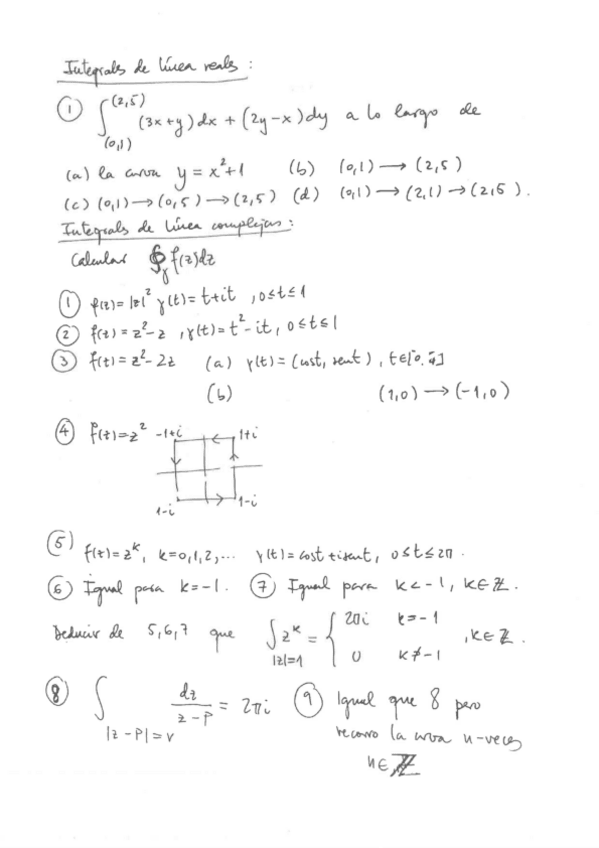 Integrals de línea reals :
① ∫_(0,1)^(2,5) (3x+y)dx + (2y-x)dy a lo largo de
(a) la curva y = x²+1 (b) (0,1) → (2,5)
(c) (0,1) → (0,5) → (2,5) (d) (0,1) → (2,1) → (2,5).
Integrals de línea complejas :
Calcular ∮_γ f(z)dz
① f(z)=|z|² γ(t)= t+it , 0≤t≤1
② f(z)= z²-z , γ(t)= t²-it, 0≤t≤1
③ f(z)= z²-2z (a) γ(t)=(cost, sent), t∈[0,π]
(b) (1,0) → (-1,0)
④ f(z)=z² -1+i 1+i
1-i 1-i
⑤ f(z)=z^k, k=0,1,2,... γ(t)=cost+isent, 0≤t≤2π.
⑥ Igual para k=-1. ⑦ Igual para k<-1, k∈ℤ.
Deducir de 5,6,7 que ∫_|z|=1 z^k = { 2πi k=-1
0 k≠-1 , k∈ℤ.
⑧ ∫_|z-P|=r dz/(z-P) = 2πi ⑨ Igual que 8 pero
recorro la curva n-veces
n∈ℤ